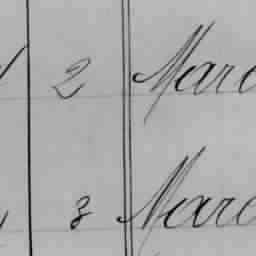 2 Marc
3 Marc